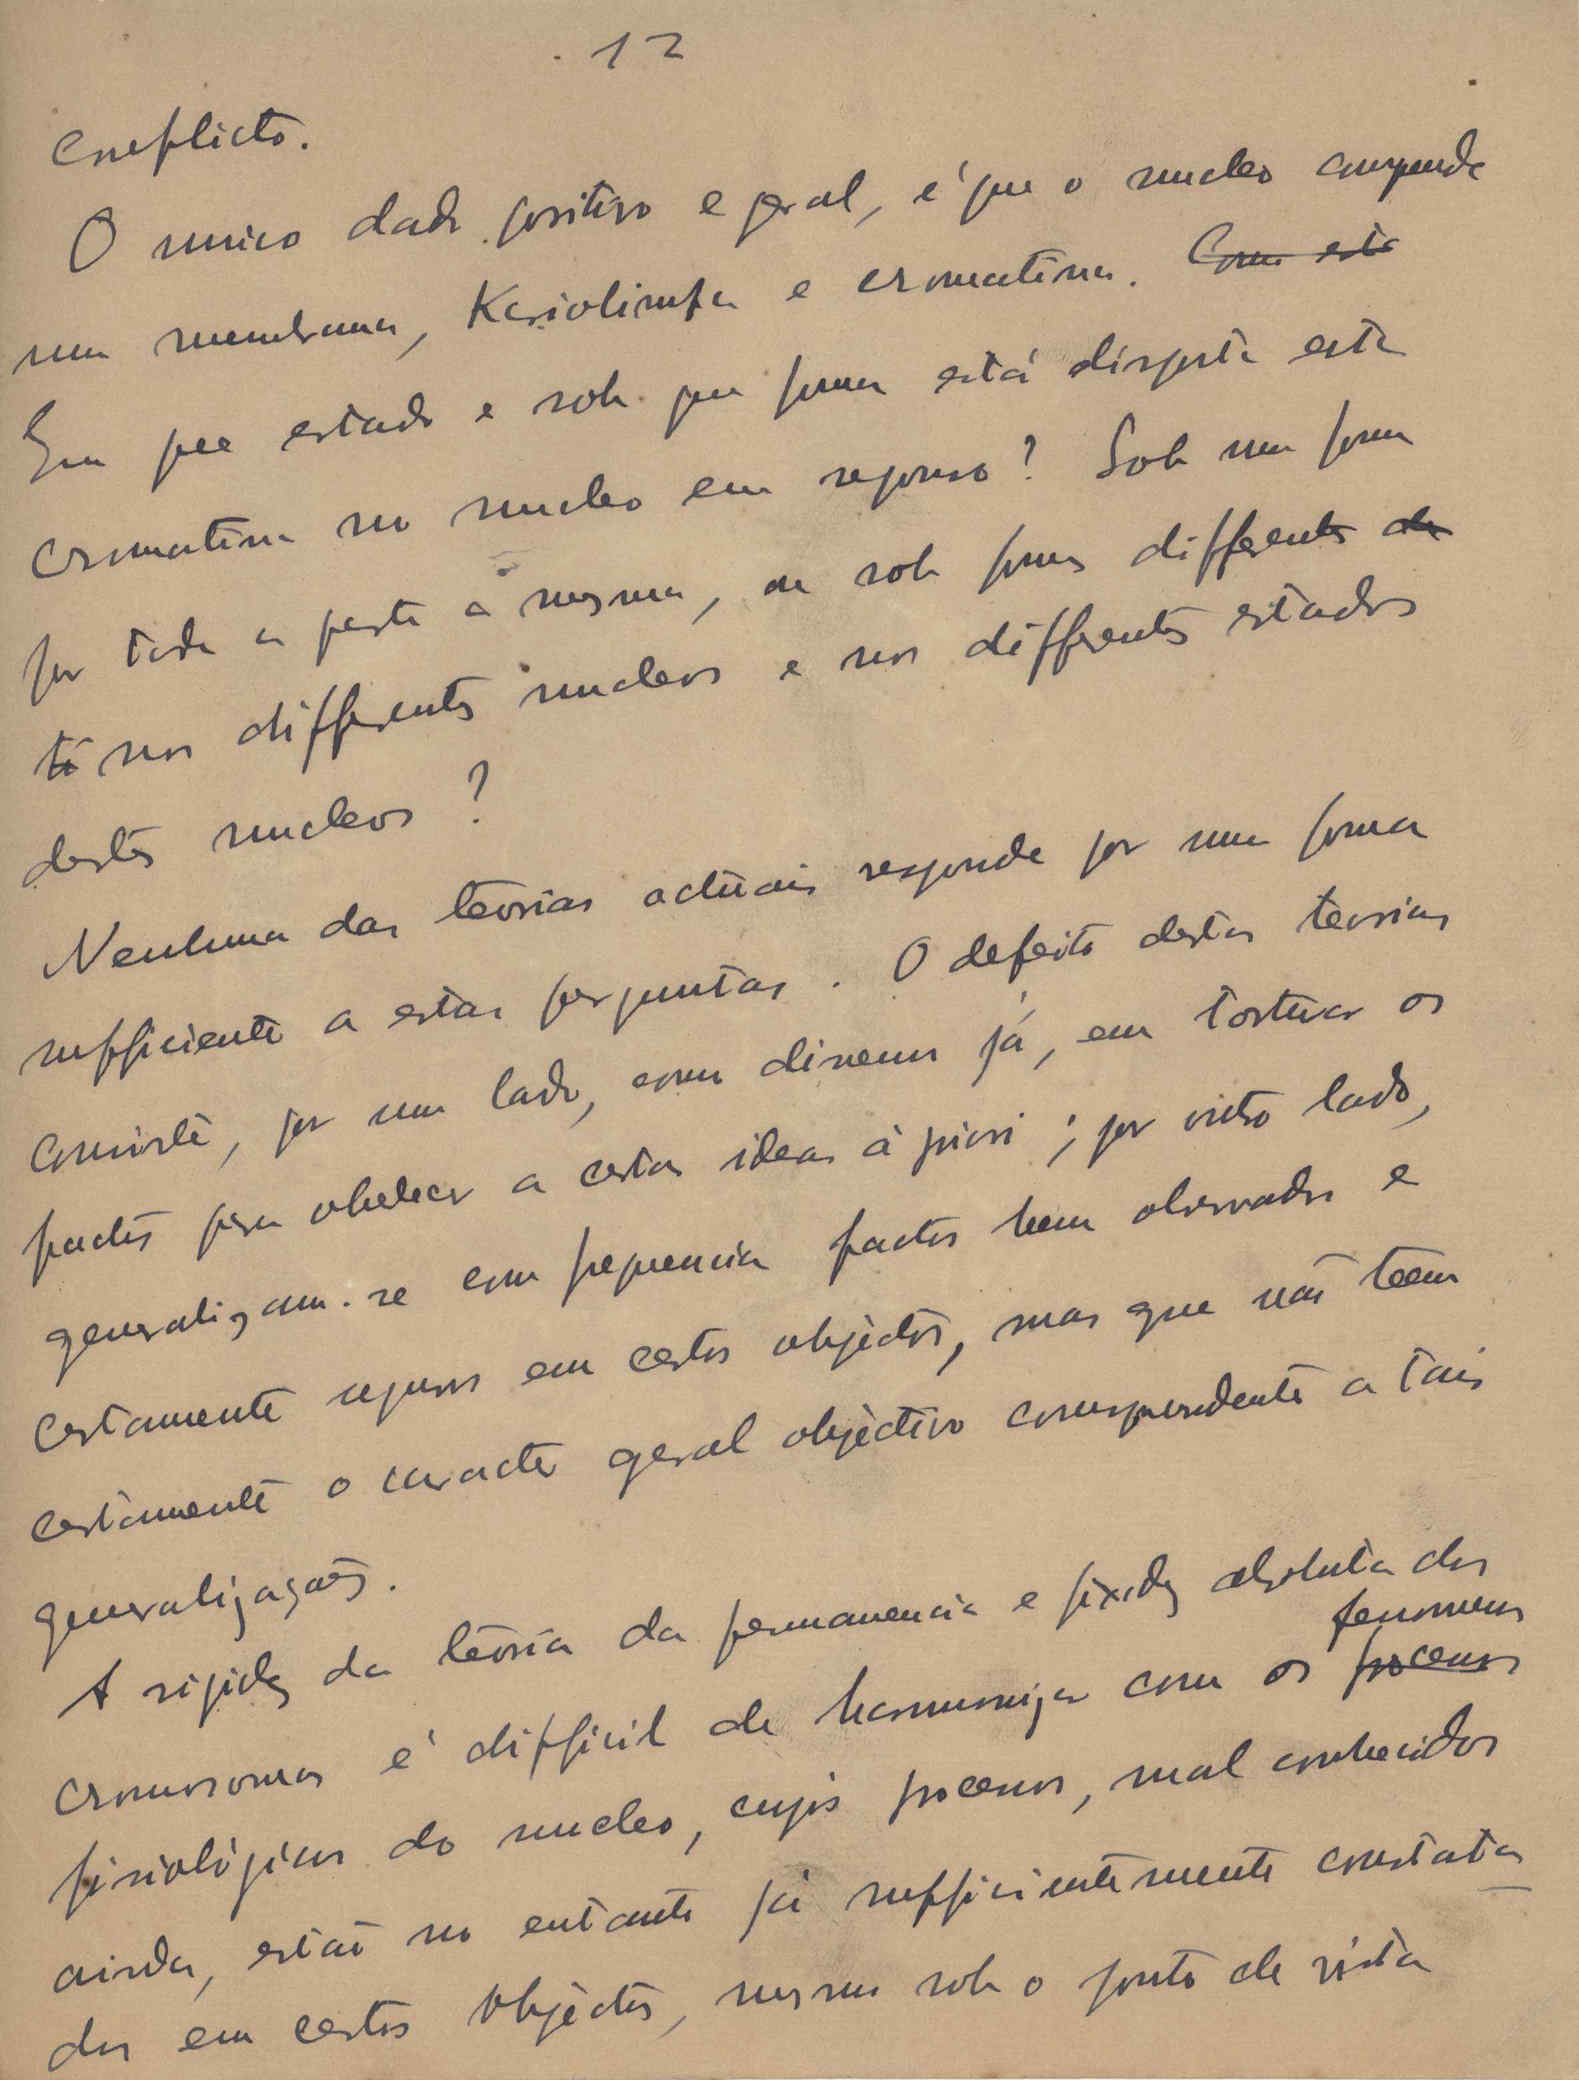 12
conflicto.
O unico dado positivo e geral, é que o nucleo comprende
uma membrana, Kariolimfa e cromatina. Com esta
Em que estado e sob que forma está disposta esta
cromatina no nucleo em reposo? Sob uma forma
por toda a parte a mesma, ou sob formas differentes de
nos differentes nucleos e nos differentes estados
destes nucleos?
Nenhuma das teorias actuais responde por uma forma
sufficiente a estas perguntas. O defeito destas teorias
consiste, por um lado, como dissemos já, em torturar os
factos para obedecer a certas ideas à priori; por outro lado,
generalizam-se com frequencia factos bem observados e
certamente seguros em certos objectos, mas que não teem
certamente o caracter geral objectivo correspondente a tais
generalizações.
A rigidez da teoria da permanencia e fixidez absoluta dos
fenomenos
cromosomas é difficil de harmonizar com os processos
fisiológicos do nucleo, cujos processos, mal conhecidos
ainda, estão no entanto já sufficientemente constata
dos em certos objectos, mesmo sob o ponto de vista